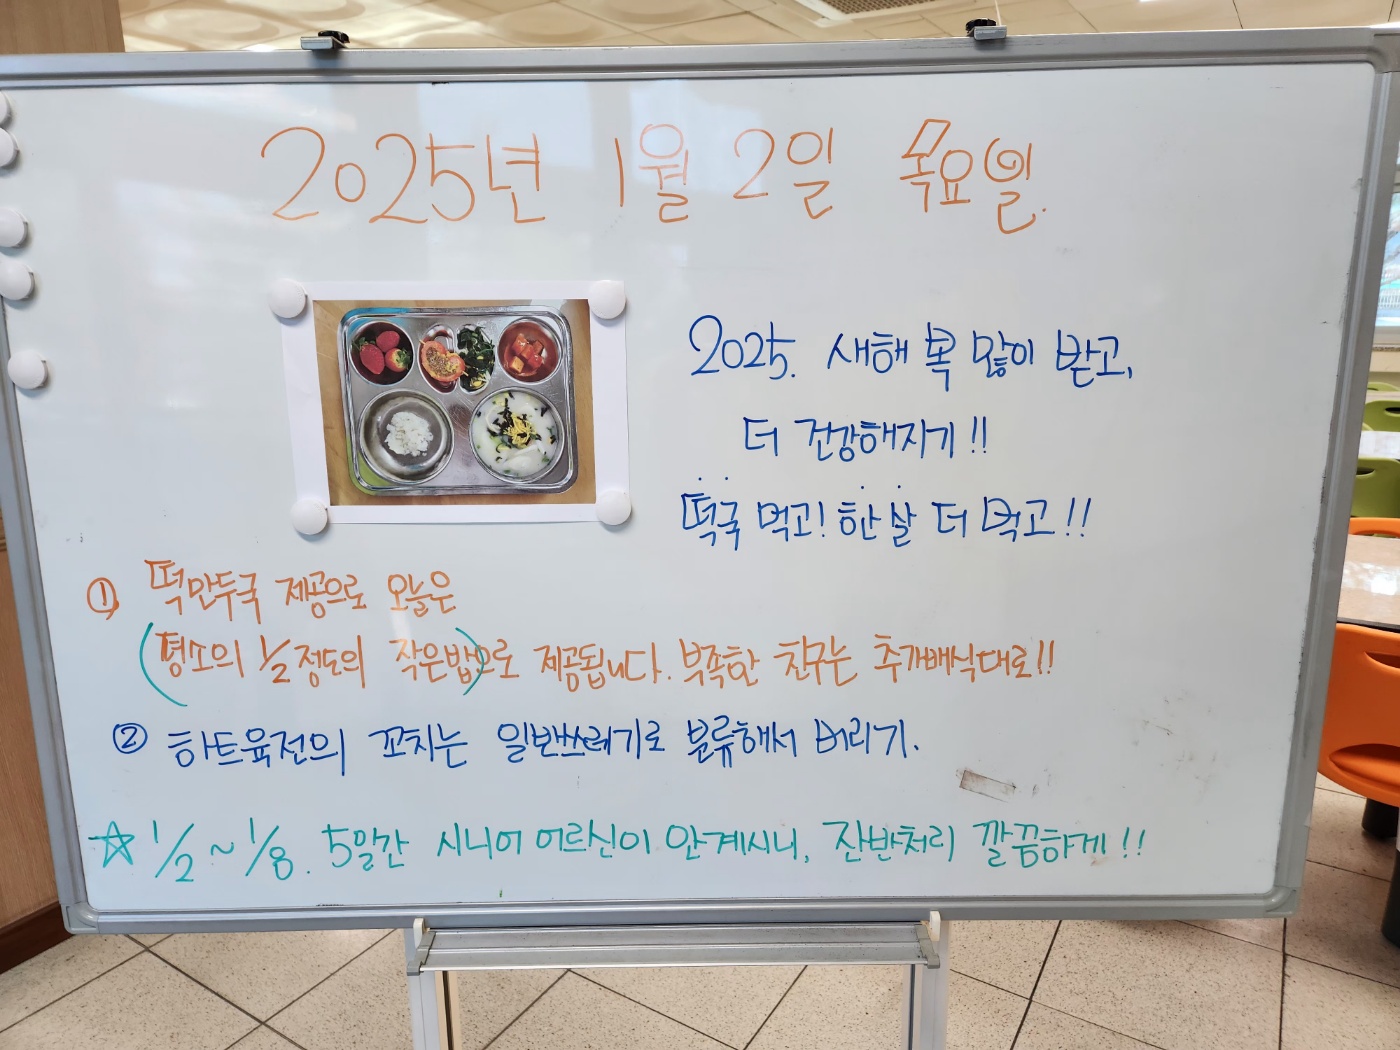 2025년 1월 2일 목요일.
2025. 새해 복 많이 받고,
더 건강해지기!!
떡국 먹고! 한 살 더 먹고!!
① 떡만두국 제공으로 오늘은
(평소의 1/2 정도의 작은밥)으로 제공됩니다. 부족한 친구는 추가배식대로!!
② 하트육전의 꼬치는 일반쓰레기로 분류해서 버리기.
☆ 1/2 ~ 1/8. 5일간 시니어 어르신이 안계시니, 잔반처리 깔끔하게!!